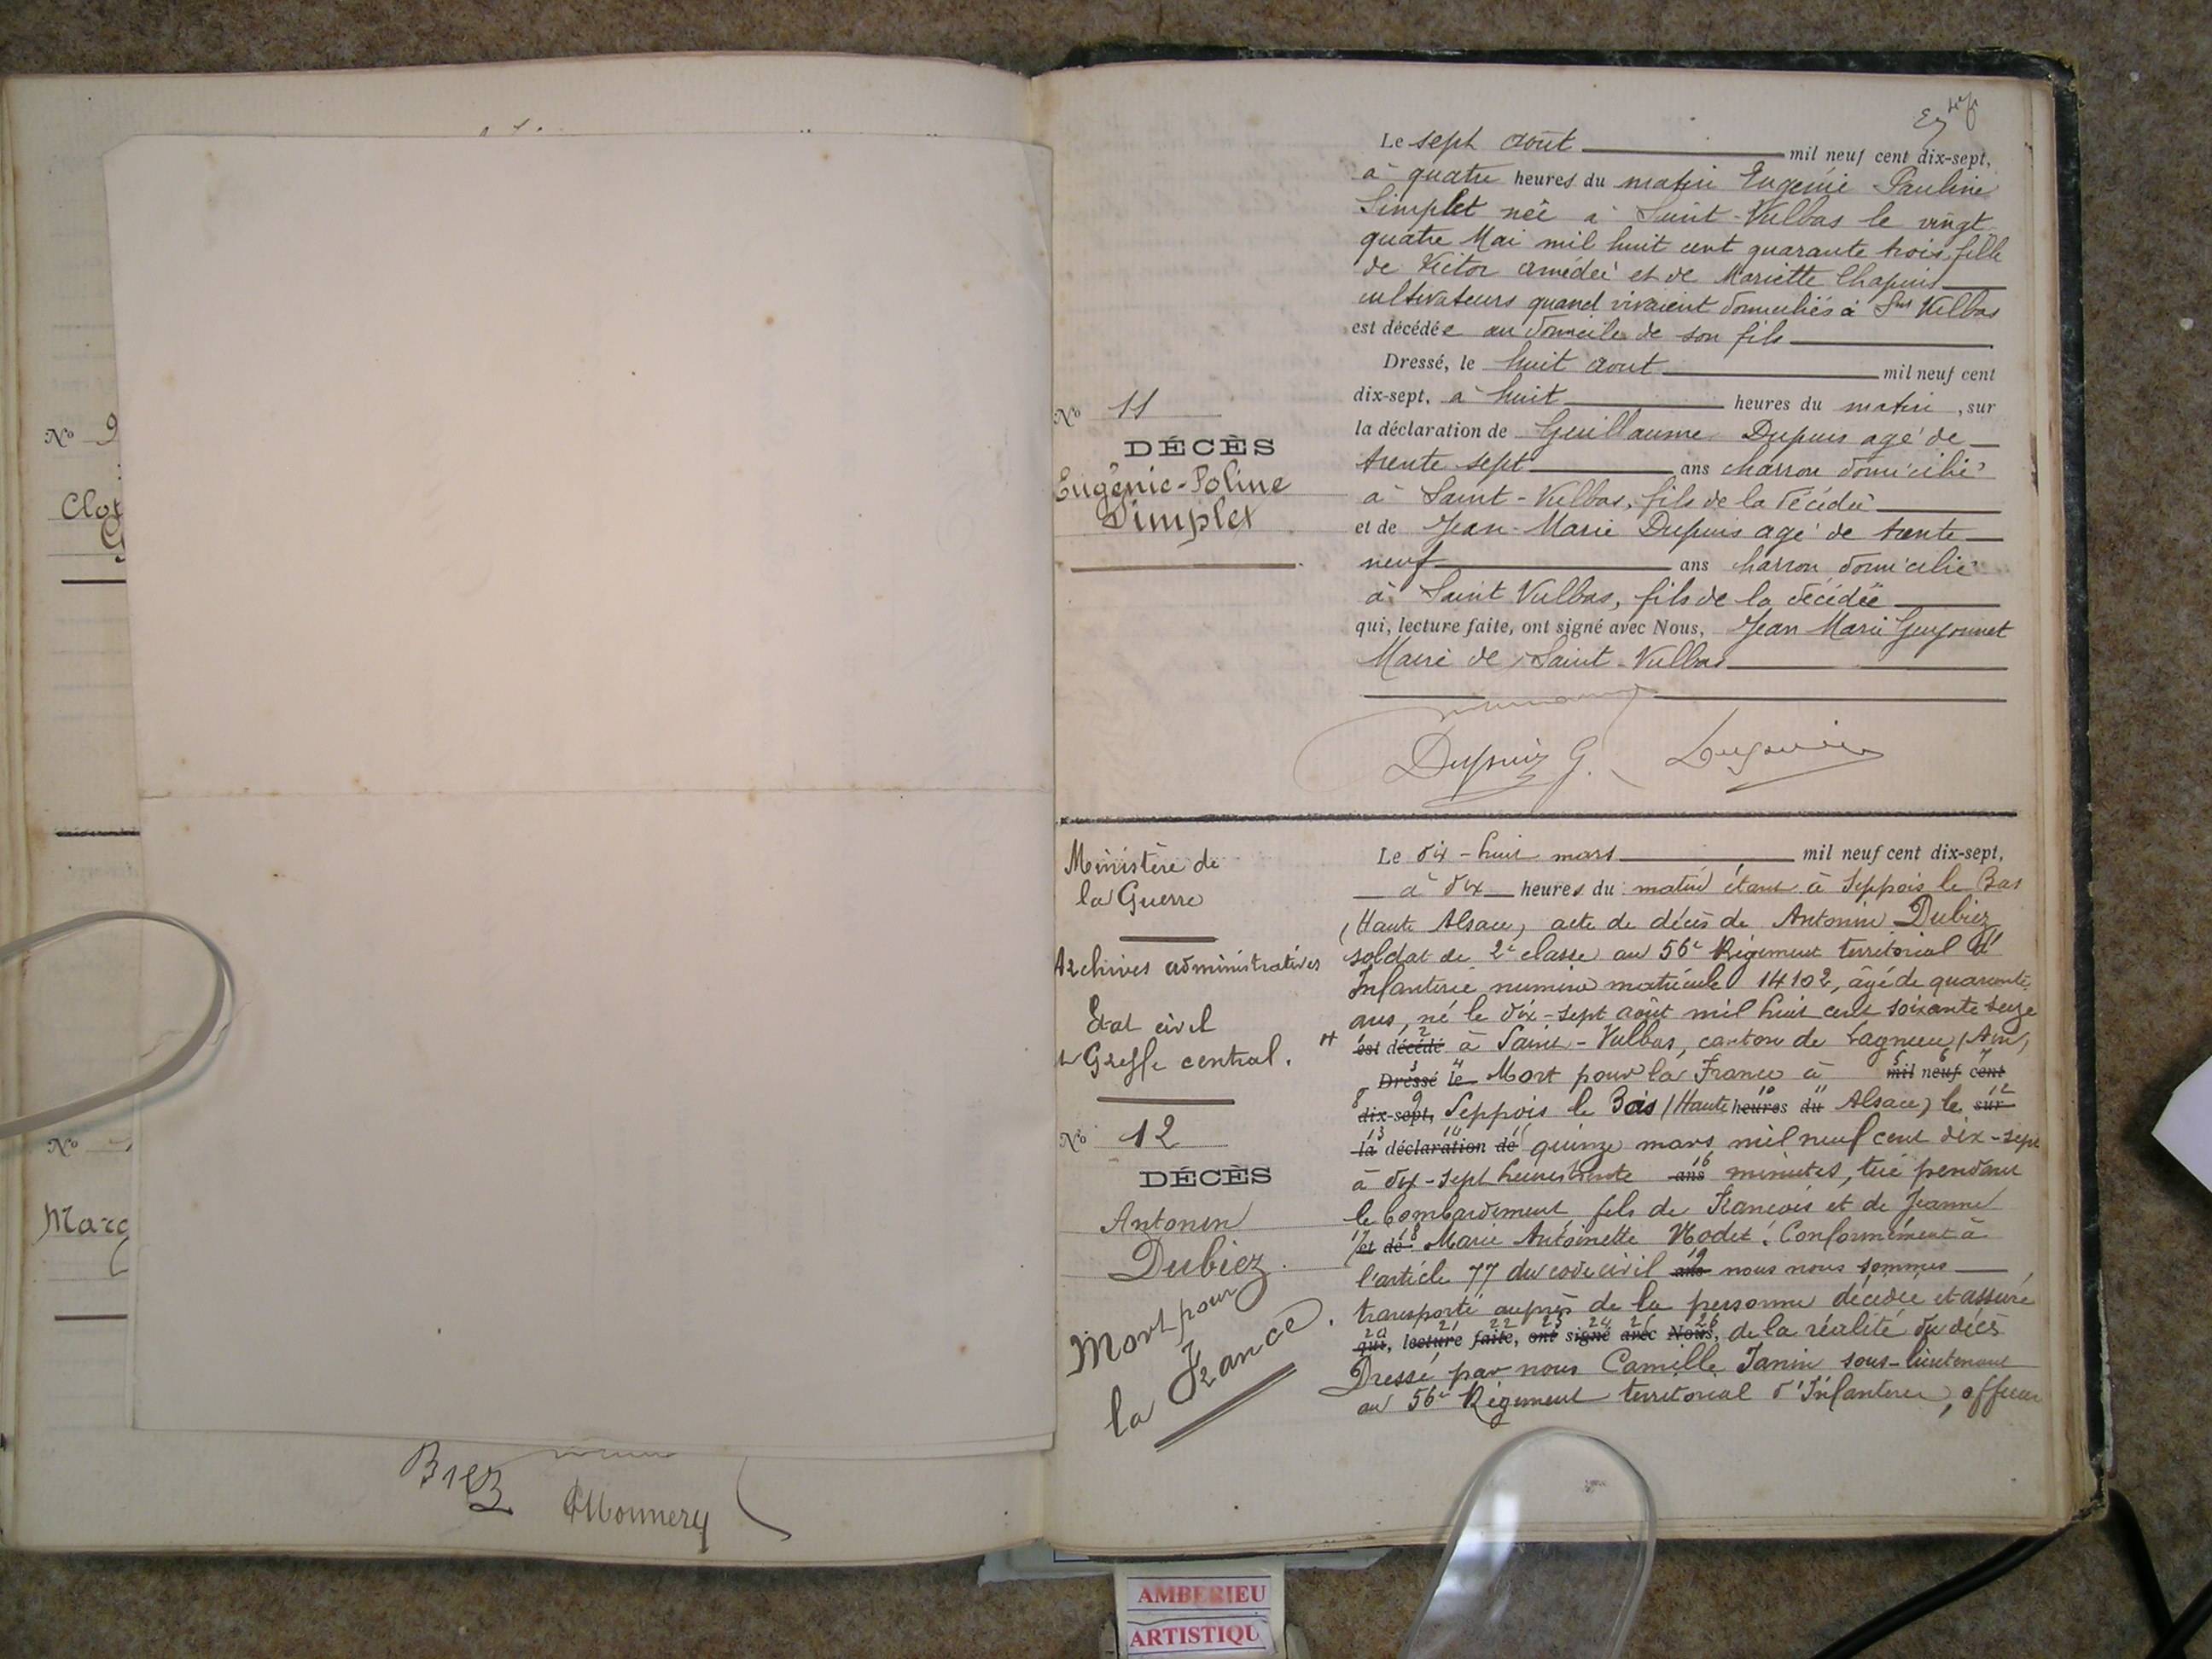 Nº 9
Clot
Nº
Marc
Brez
CMonnery
Le sept août mil neuf cent dix-sept,
à quatre heures du matin Eugénie Pauline
Simplet née à Saint-Vulbas le vingt
quatre Mai mil huit cent quarante trois, fille
de Victor amédée et de Mariette Chapuis
cultivateurs quand vivaient domiciliés à Snt Vulbas
est décédée au domicile de son fils
Dressé, le huit aout mil neuf cent
dix-sept, à huit heures du matin, sur
la déclaration de Guillaume Dupuis agé de
trente sept ans charron domicilié
à Saint-Vulbas, fils de la décédée
et de Jean-Marie Dupuis agé de trente
neuf ans charron domicilié
à Saint Vulbas, fils de la décédée
qui, lecture faite, ont signé avec Nous, Jean Marie Guyonnet
Maire de Saint-Vulbas
Nº 11
DÉCÈS
Eugénie-Poline
Simplet
Dupuis G.
Ministère de
la Guerre
Archives administratives
Etat civil
Greffe central.
Nº 12
DÉCÈS
Antonin
Dubiez.
Mort pour
la France.
Le dix-huit mars mil neuf cent dix-sept,
à dix heures du matin étant à Seppois le Bas
(Haute Alsace) acte de décès de Antonin Dubiez
soldat de 2e classe au 56e Régiment territorial d'
Infanterie numéro matricule 14102, âgé de quarante
ans, né le dix-sept août mil huit cent soixante seize
est décédé 2 à Saint-Vulbas, canton de Lagnieu (Ain)
Dressé 3 le 4 Mort pour la France à mil 5 neuf 6 cent 7
8 dix-sept, 9 Seppois le Bas (Haute heures 10 du 11 Alsace) le sur 12
la 13 déclaration 14 de 15 quinze mars mil neuf cent dix-sept
à dix-sept heures trente ans 16 minutes, tué pendant
le bombardement fils de François et de Jeanne
17 et de 18 Marie Antoinette Modet. Conformément à
l'article 77 du code civil ans 19 nous nous sommes
transporté auprès de la personne décédée et assuré
qui, 20 lecture 21 faite, 22 ont 23 signé 24 avec 25 Nous, 26 de la réalité du décès
Dressé par nous Camille Janin sous-lieutenant
au 56e Régiment territorial d'Infanterie, officier
AMBERIEU
ARTISTIQU